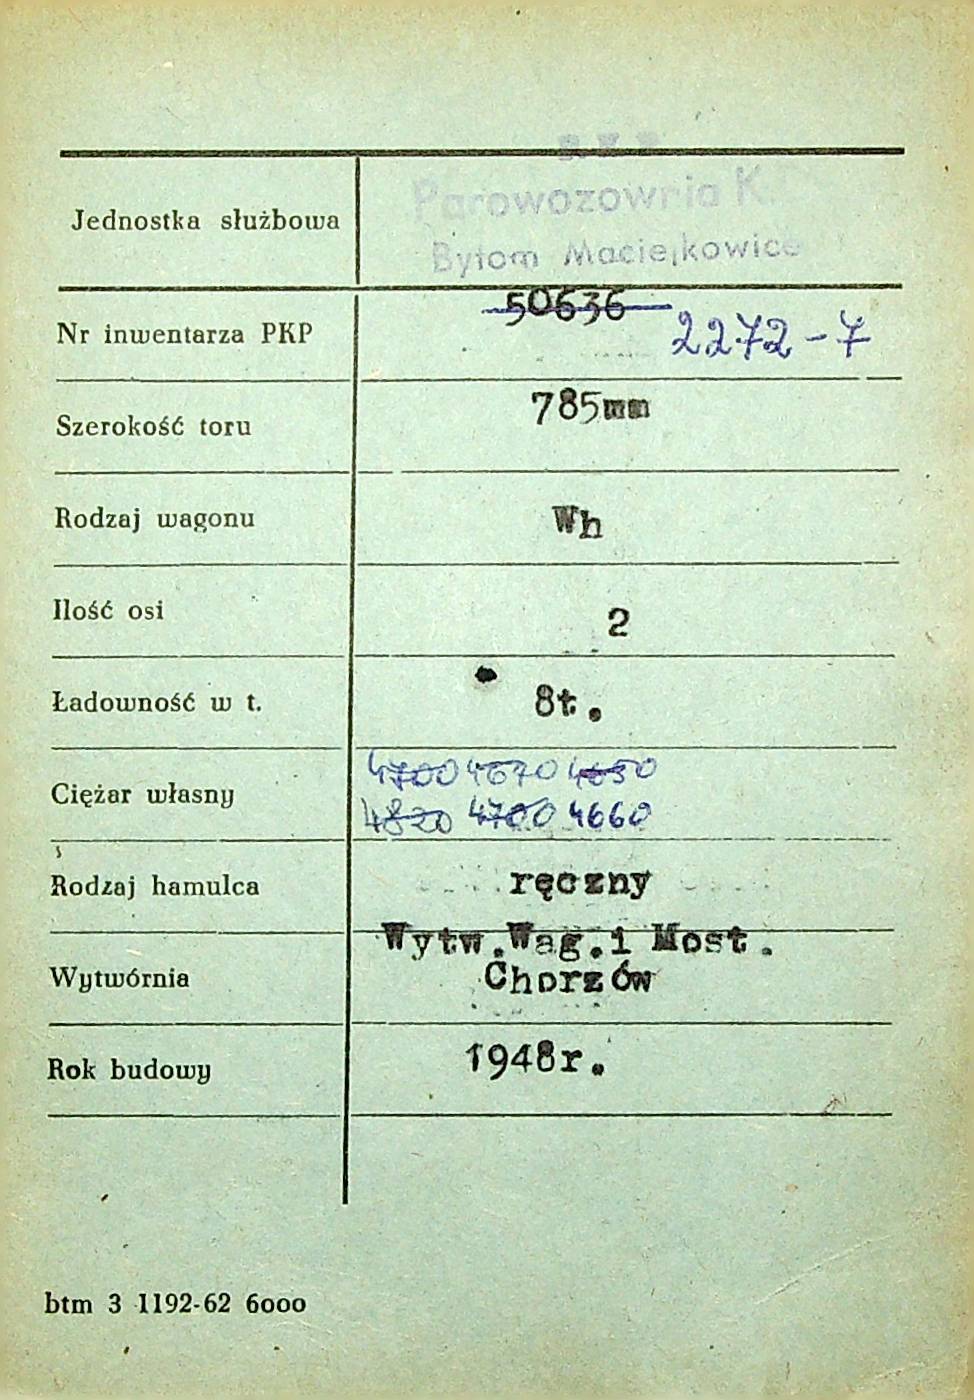 P.K.P.
Jednostka służbowa Parowozownia K.
Bytom Maciejkowice
Nr inwentarza PKP 50636 2272-7
Szerokość toru 785mm
Rodzaj wagonu Wh
Ilość osi 2
Ładowność w t. 8t.
Ciężar własny 4700 4670 4650
4820 4700 4660
Rodzaj hamulca ręczny
Wytwórnia Wytw.Wag.i Most.
Chorzów
Rok budowy 1948r.
btm 3 1192-62 6000